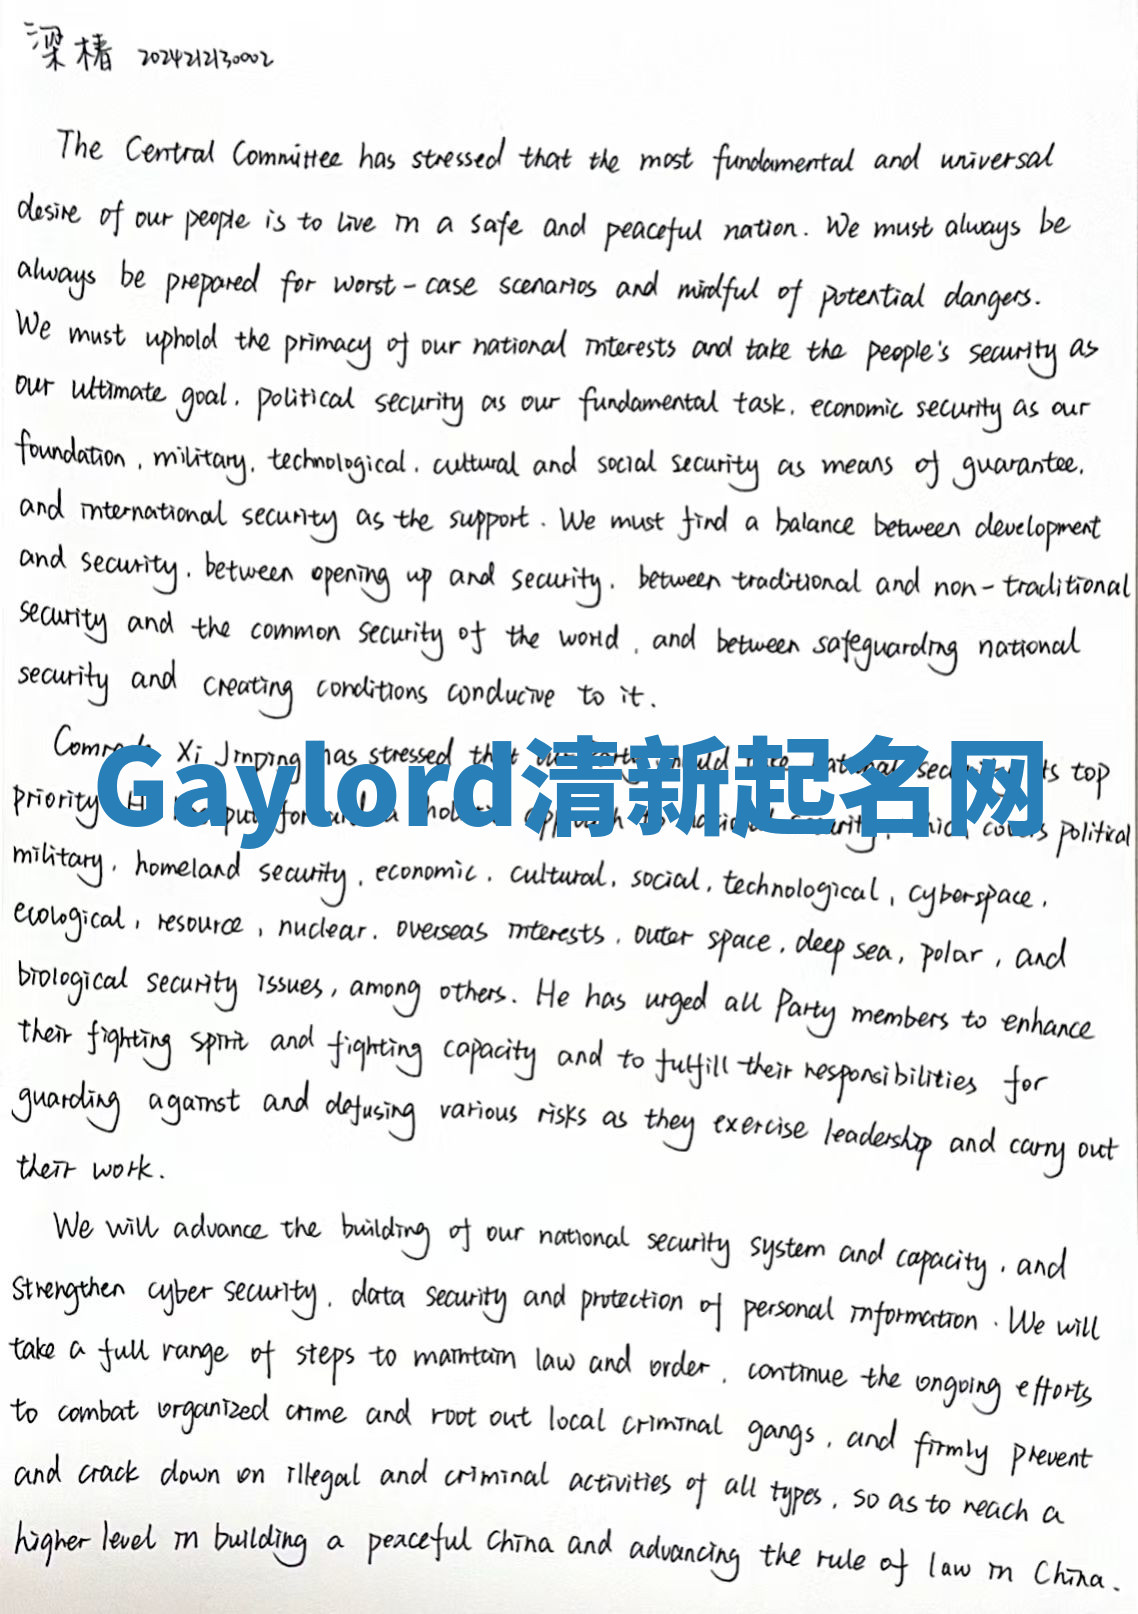 梁椿 2024212130002
The Central Committee has stressed that the most fundamental and universal
desire of our people is to live in a safe and peaceful nation. We must always be
always be prepared for worst-case scenarios and mindful of potential dangers.
We must uphold the primacy of our national interests and take the people's security as
our ultimate goal, political security as our fundamental task, economic security as our
foundation, military, technological, cultural and social security as means of guarantee,
and international security as the support. We must find a balance between development
and security, between opening up and security, between traditional and non-traditional
security and the common security of the world, and between safeguarding national
security and creating conditions conducive to it.
Xi Jinping has stressed that should take national security its top
Gaylord清新起名网
priority. He put forward a holistic approach to national security, which covers political
military, homeland security, economic, cultural, social, technological, cyberspace,
ecological, resource, nuclear, overseas interests, outer space, deep sea, polar, and
biological security issues, among others. He has urged all Party members to enhance
their fighting spirit and fighting capacity and to fulfill their responsibilities for
guarding against and defusing various risks as they exercise leadership and carry out
their work.
We will advance the building of our national security system and capacity, and
strengthen cyber security, data security and protection of personal information. We will
take a full range of steps to maintain law and order, continue the ongoing efforts
to combat organized crime and root out local criminal gangs, and firmly prevent
and crack down on illegal and criminal activities of all types, so as to reach a
higher level in building a peaceful China and advancing the rule of law in China.